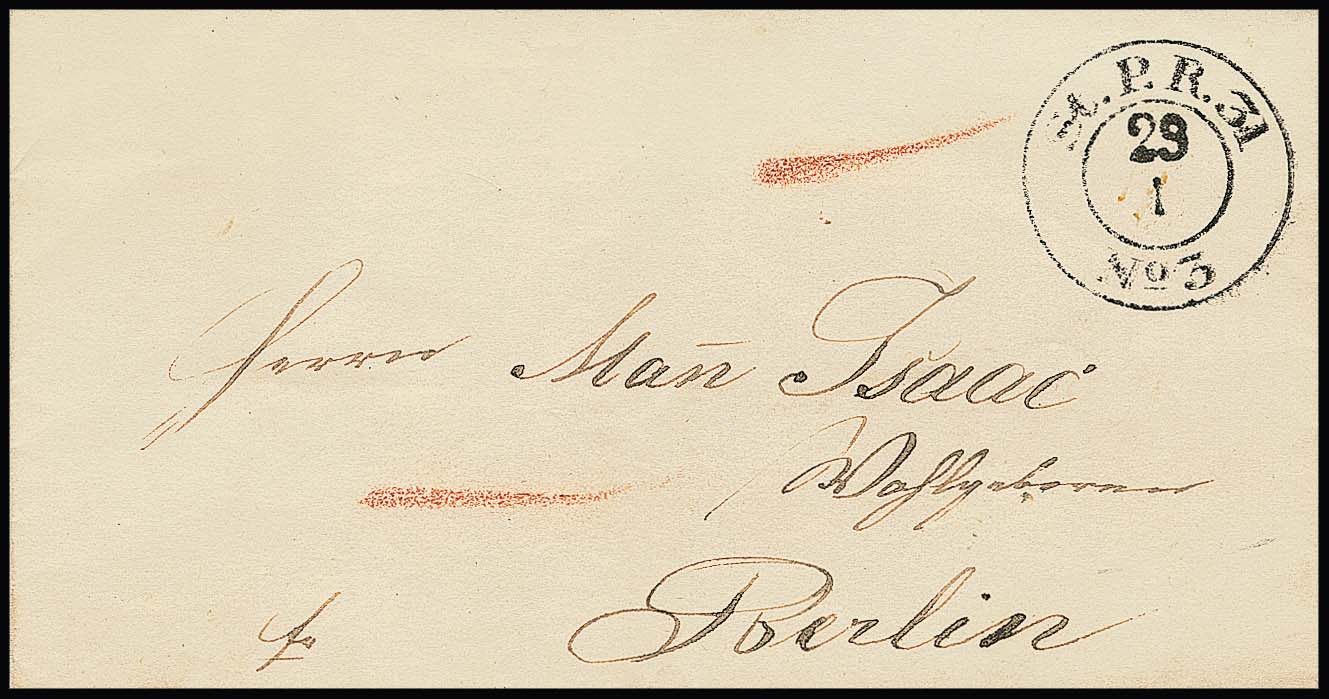 St. P. R. 31
29
1
No 5
Herrn Mañ Isaac
Wohlgeboren
Berlin
fr